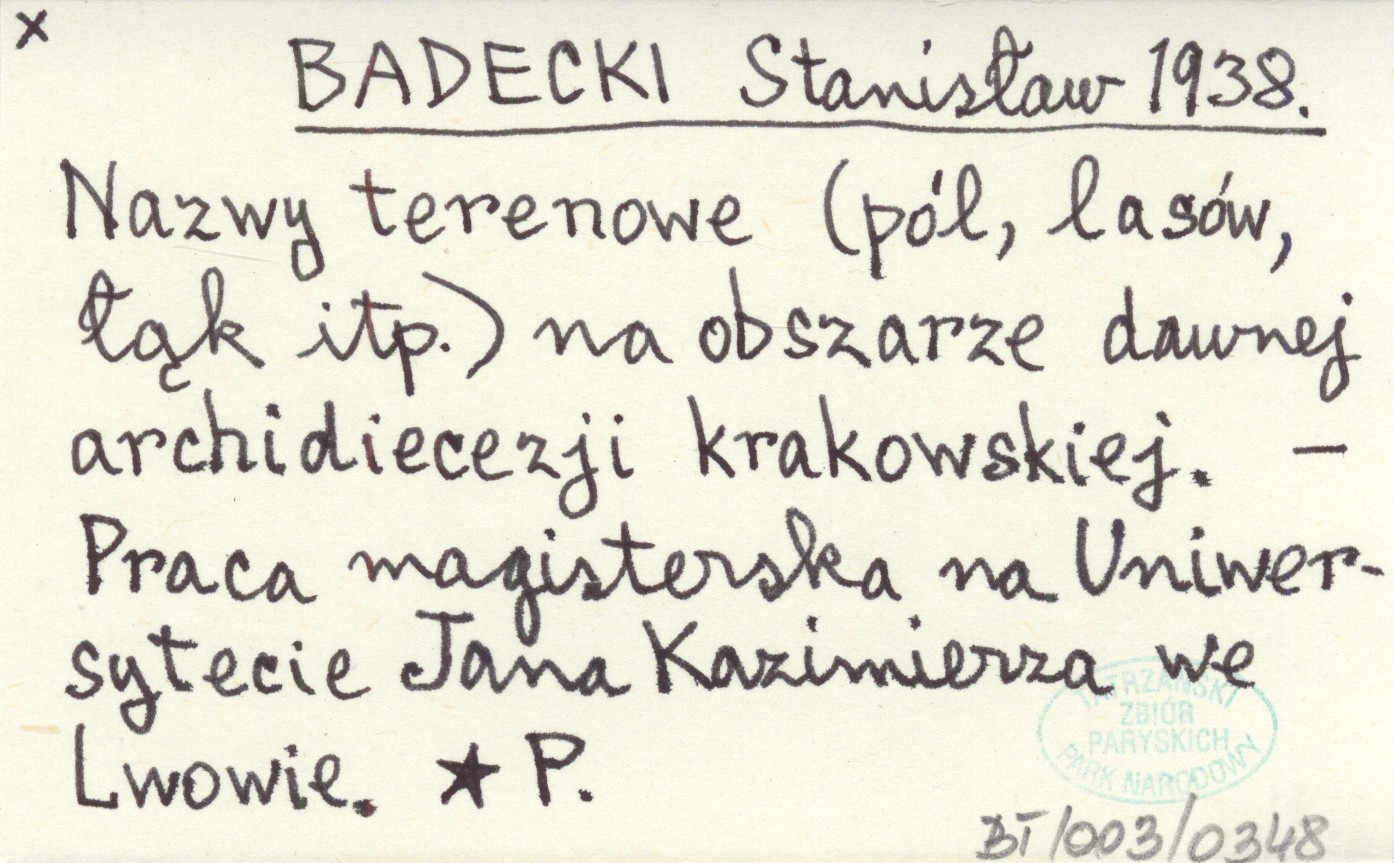 x
BADECKI Stanisław 1938.
Nazwy terenowe (pól, lasów,
łąk itp.) na obszarze dawnej
archidiecezji krakowskiej. —
Praca magisterska na Uniwer-
sytecie Jana Kazimierza we
Lwowie. ★ P.
TATRZAŃSKI
ZBIÓR
PARYSKICH
PARK NARODOWY
BT/003/0348